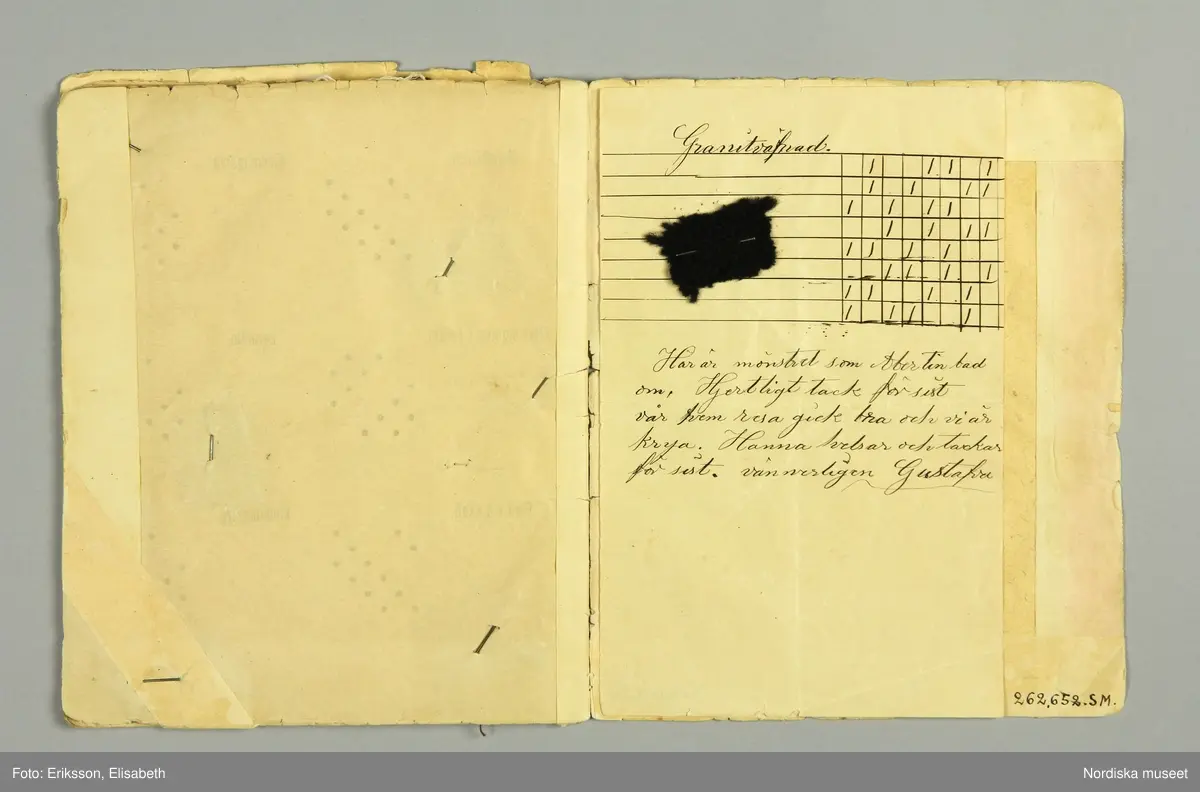 Granitväfnad.
Här är mönstret som Abertin bad
om, Hjertligt tack för sist
vår hem resa gick bra och vi är
krya. Hanna helsar och tackar
för sist. vännerligen Gustafva
262,652.SM.
Foto: Eriksson, Elisabeth
Nordiska museet